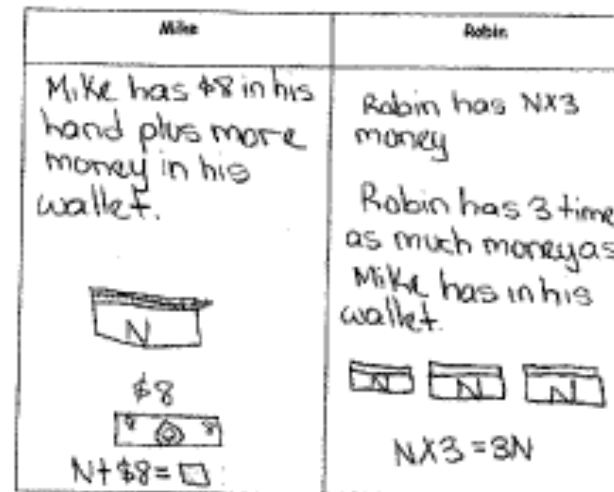 Mike
Mike has $8 in his
hand plus more
money in his
wallet.
N
$8
8 8
N+$8=□
Robin
Robin has NX3
money
Robin has 3 time
as much money as
Mike has in his
wallet.
N N N
NX3=3N